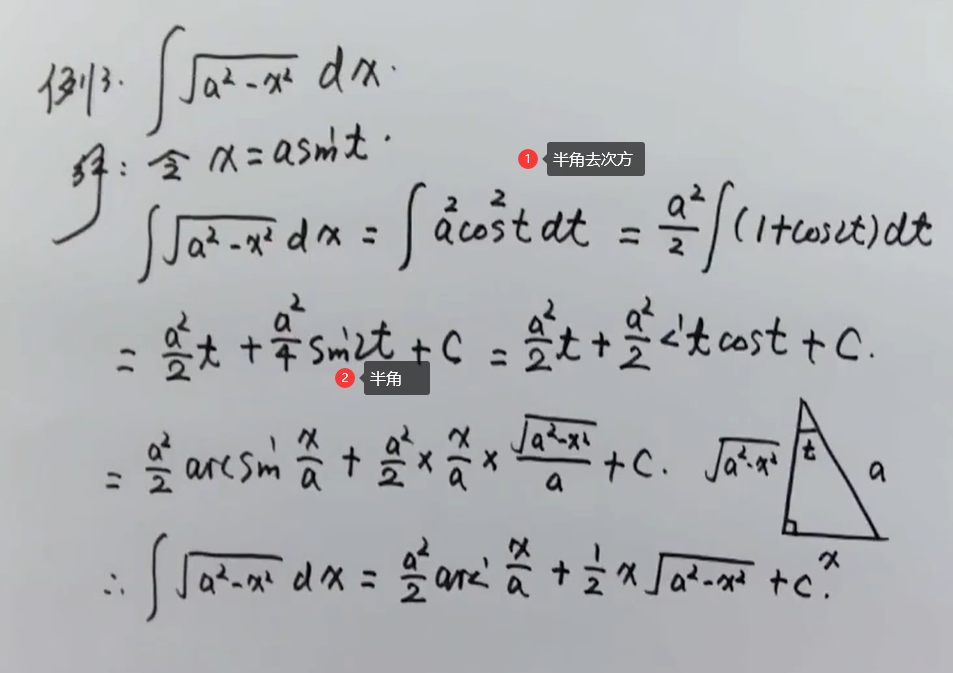 例3. ∫√(a²-x²) dx.
解: 令 x=asint.
1 半角去次方
∫√(a²-x²) dx = ∫a²cos²t dt = a²/2 ∫(1+cos2t)dt
= a²/2 t + a²/4 sin2t + C = a²/2 t + a²/2 <'t cost + C.
2 半角
= a²/2 arcsin x/a + a²/2 × x/a × √(a²-x²)/a + C.
√(a²-x²) t a x
∴ ∫√(a²-x²) dx = a²/2 arc' x/a + 1/2 x√(a²-x²) + C.